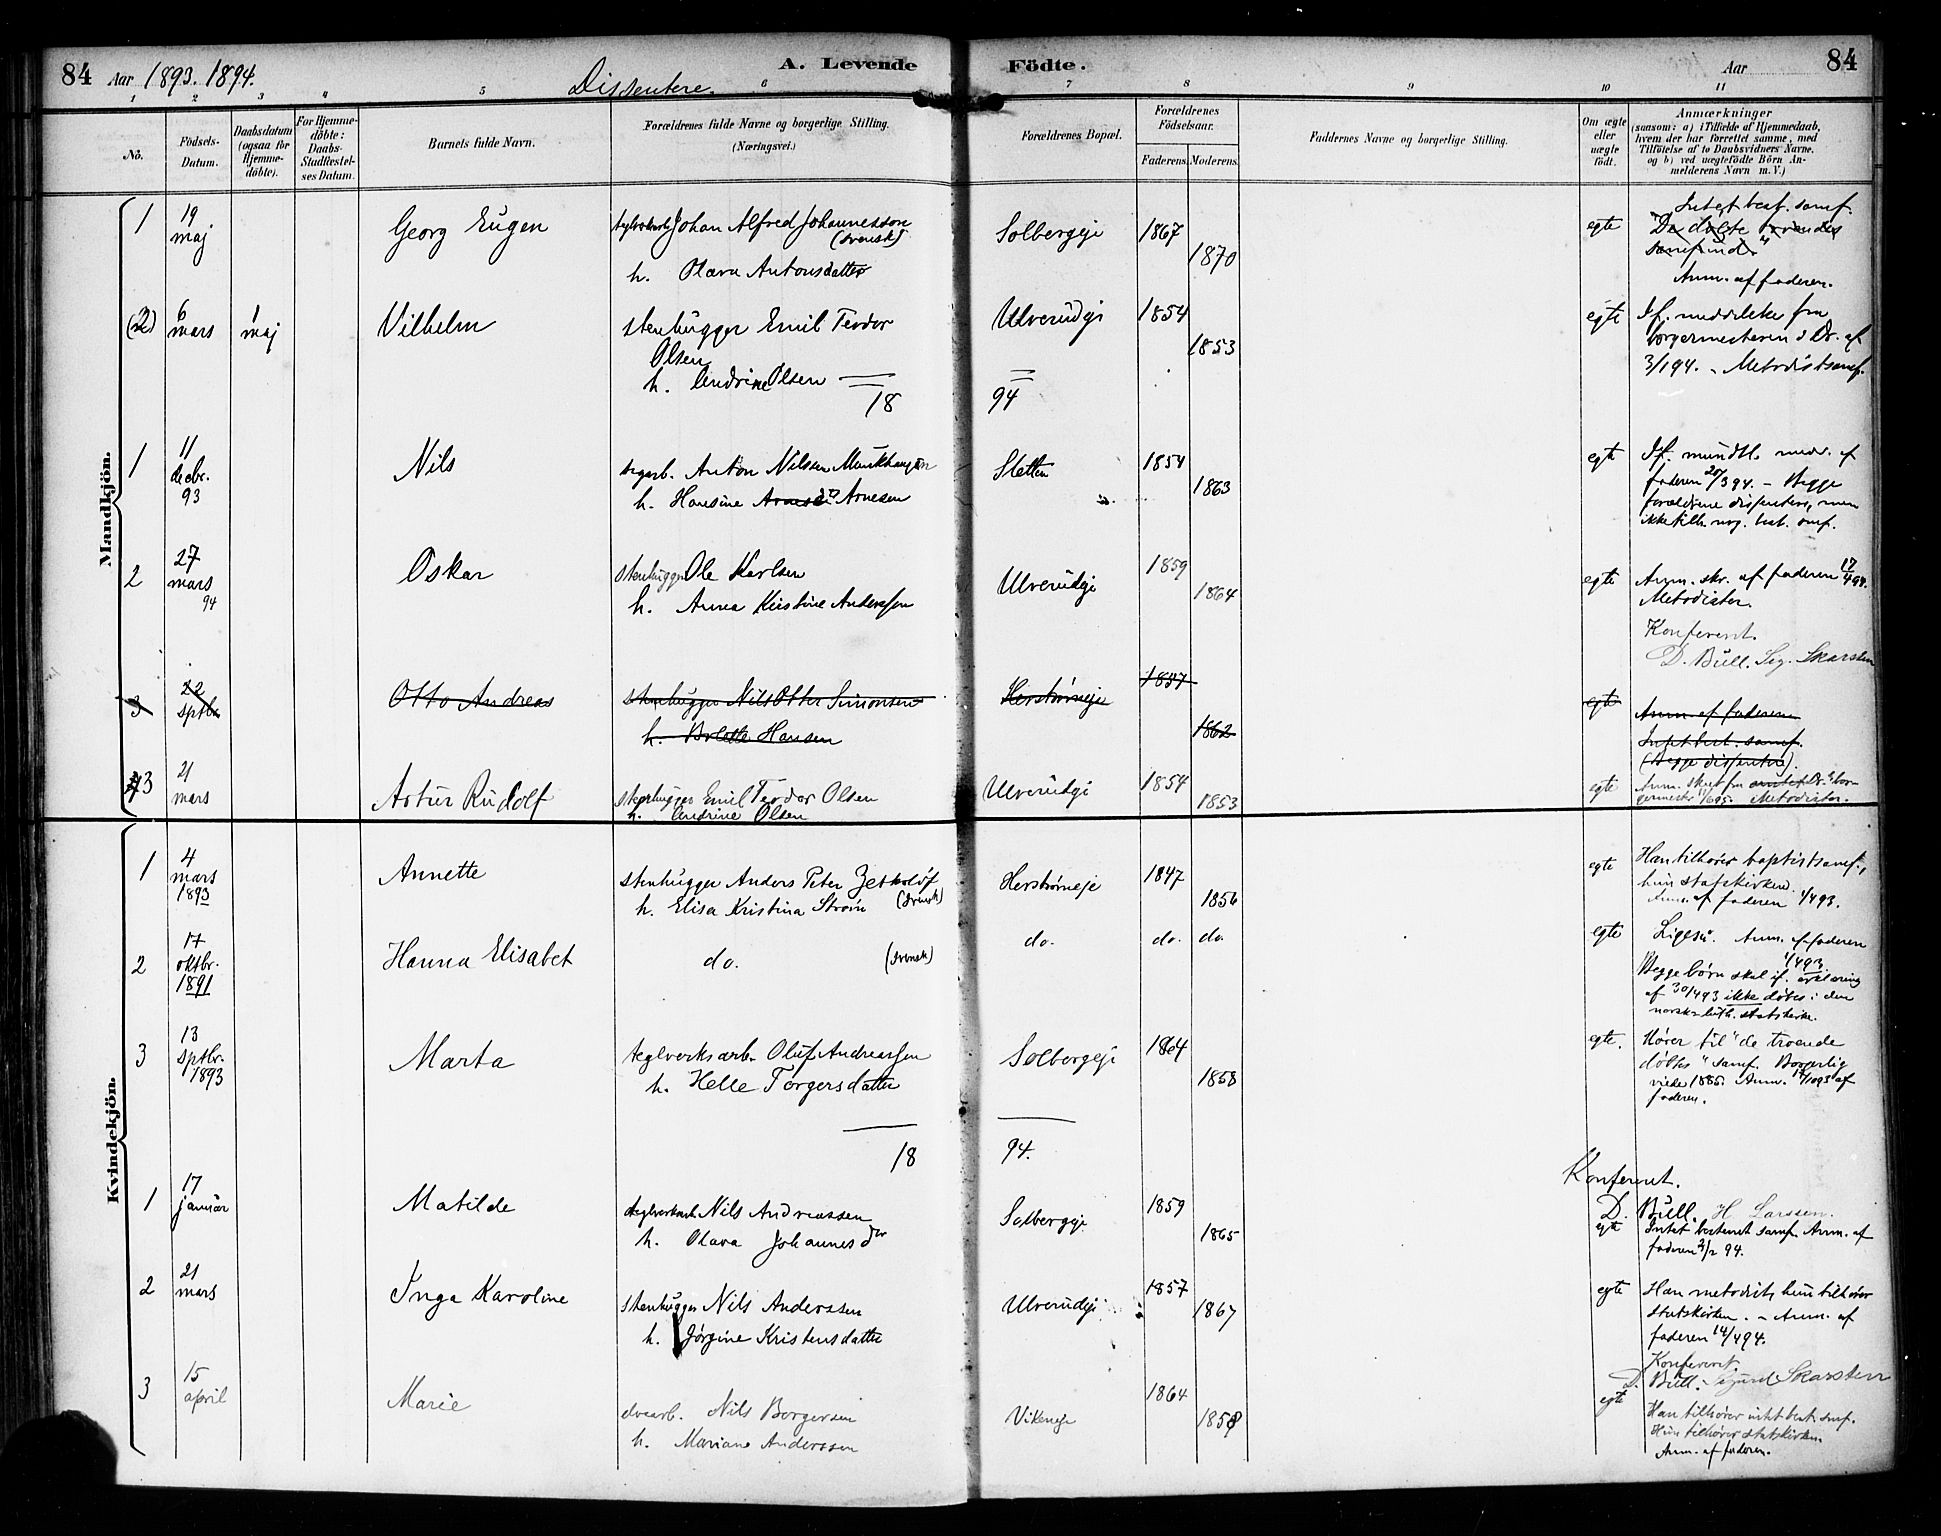 84 Aar 1893. 1894.
Dissentere.
A. Levende Födte.
Aar 84
1 2 3 4 5 6 7 8 9 10 11
No.
Födsels-
Datum.
Daabsdatum
(ogsaa for
Hjemme-
döbte).
For Hjemme-
döbte:
Daabs-
Stadfæstel-
ses Datum.
Barnets fulde Navn.
Forældrenes fulde Navne og borgerlige Stilling.
(Næringsvei.)
Forældrenes Bopæl.
Forældrenes
Födselsaar.
Faderens. Moderens.
Faddernes Navne og borgerlige Stilling.
Om ægte
eller
uægte
födt.
Anmærkninger
(saasom: a) i Tilfælde af Hjemmedaab,
hvem der har forrettet samme, med
Tilföielse af to Daabsvidners Navne,
og b) ved uægtefödte Börn An-
melderens Navn m. V.)
Mandkjön.
1
19
maj
Georg Eugen
Johan Alfred Johannesson
(svensk)
h. Olava Antonsdatter
Solbergeje
1867
1870
egte
Intet best. samf.
De døbte troendes
samfund"
Anm. af faderen.
(2)
6
mars
1
maj
Vilhelm
stenhugger Emil Teodor
Olsen
h. Andrine Olsen
Ulverudeje
1854
1853
egte
If. meddelelse fra
borgermesteren i Dr. af
3/1 94. - Metodistsamf.
18 94
1
11
decbr.
93
Nils
Anton Nilsen
h. Hansine Arnesen
Sletten
1854
1863
egte
If. mundtl. medd. af
faderen 20/3 94. - Begge
forældrene dissentere, men
ikke tilh. nog. best. smf.
2
27
mars
94
Oskar
stenhugger Ole Karlsen
h. Anna Kristine Anderssen
Ulverudeje
1859
1864
egte
Anm. skr. af faderen 17/4 94.
Metodister.
Konferert.
D. Bull. Sig. Skarsten
3
22
sptbr.
Otto Andreas
stenhugger Nils Otter Simonsen
h. Bolette Hansen
Herstrømeje
1837
1862
egte
Anm. af faderen
Intet best. samf.
(Begge dissentere).
3
21
mars
Artur Rudolf
stenhugger Emil Teodor Olsen
h. Andrine Olsen
Ulverudeje
1854
1853
egte
Metodister.
Kvindekjön.
1
4
mars
1893
Annette
stenhugger Anders Peter
h. Elisa Kristina Strøm (svensk)
Herstrømeje
1847
1856
egte
Han tilhører baptistsamf.,
hun statskirken.
Anm. af faderen 1/4 93.
2
17
oktbr.
1891
Hanna Elisabet
do. (svensk)
do.
do. do.
egte
Ligesaa. Anm. af faderen
1/4 93
Begge børn skal if. erklæring
af 30/4 93 ikke døbes i den
norske luth. statskirke.
3
13
sptbr.
1893
Marta
teglverksarb. Oluf Andreassen
h. Helle Torgersdatter
Solbergeje
1864
1858
egte.
Hører til "de troende
døbtes" samf. Borgerlig
viede 1885. Anm. af
faderen.
18 94.
1
17
januar
Matilde
teglverksarb Nils Andreassen
h. Olava Johannesdtr
Solbergeje
1859
1865
Konferert.
D. Bull. H. Larssen.
egte
Intet bestemt samf. Anm. af
faderen 2/2 94.
2
21
mars
Inga Karoline
stenhugger Nils Anderssen
h. Jørgine Kristensdatter
Ulverudeje
1857
1867
egte
Han metodist, hun tilhører
statskirken. - Anm. af
faderen 14/4 94.
Konfereret.
D. Bull. Sigurd Skarsten
3
15
april
Marie
Nils Borgersen
h. Mariane Anderssen
Vikeneje
1864
1858
egte
Han tilhører intet best. smf.
Hun tilhører statskirken
Anm. af faderen.